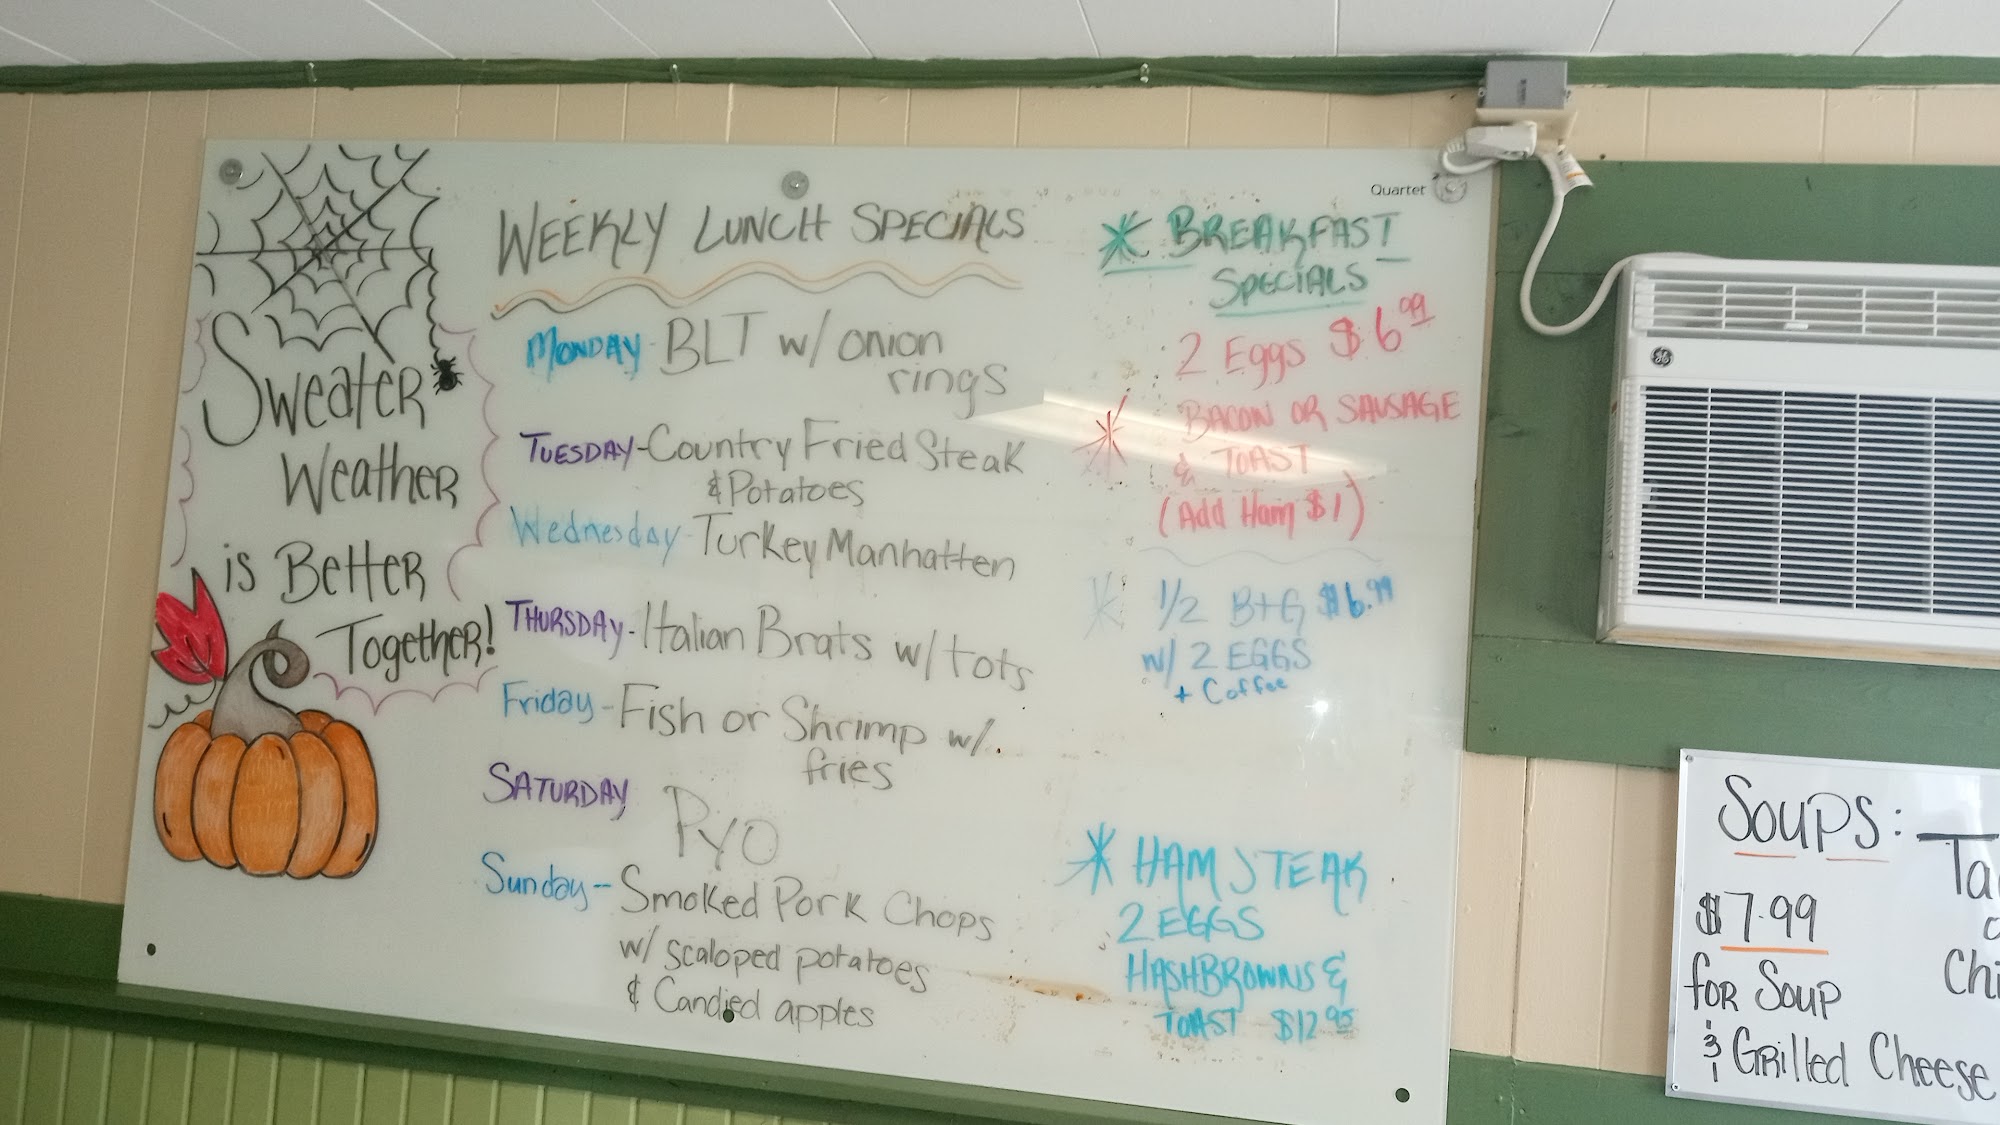 Quartet
Sweater
Weather
is Better
Together!
Weekly Lunch Specials
Monday - BLT w/ onion
rings
Tuesday - Country Fried Steak
& Potatoes
Wednesday - Turkey Manhatten
Thursday - Italian Brats w/ tots
Friday - Fish or Shrimp w/
fries
Saturday
PYO
Sunday - Smoked Pork Chops
w/ scaloped potatoes
& Candied apples
Breakfast
Specials
2 Eggs $6.99
Bacon or Sausage
& Toast
(Add Ham $1)
1/2 B+G $6.99
w/ 2 Eggs
+ Coffee
Ham Steak
2 Eggs
Hashbrowns &
Toast $12.95
Soups:
$7.99
for Soup
& Grilled Cheese